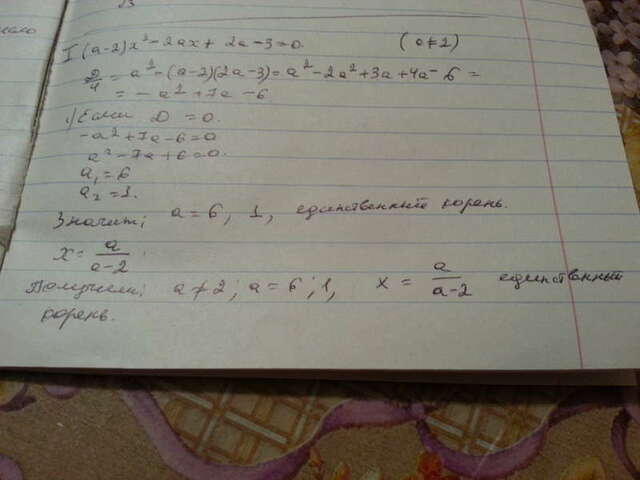 I (a-2)x² - 2ax + 2a - 3 = 0. (a≠2)
D/4 = a² - (a-2)(2a-3) = a² - 2a² + 3a + 4a - 6 =
= -a² + 7a - 6
1) Если D = 0.
-a² + 7a - 6 = 0
a² - 7a + 6 = 0.
a₁ = 6
a₂ = 1.
Значит; a = 6, 1, единственный корень.
x = a/(a-2).
Получили; a ≠ 2; a = 6; 1, x = a/(a-2) единственный
корень.